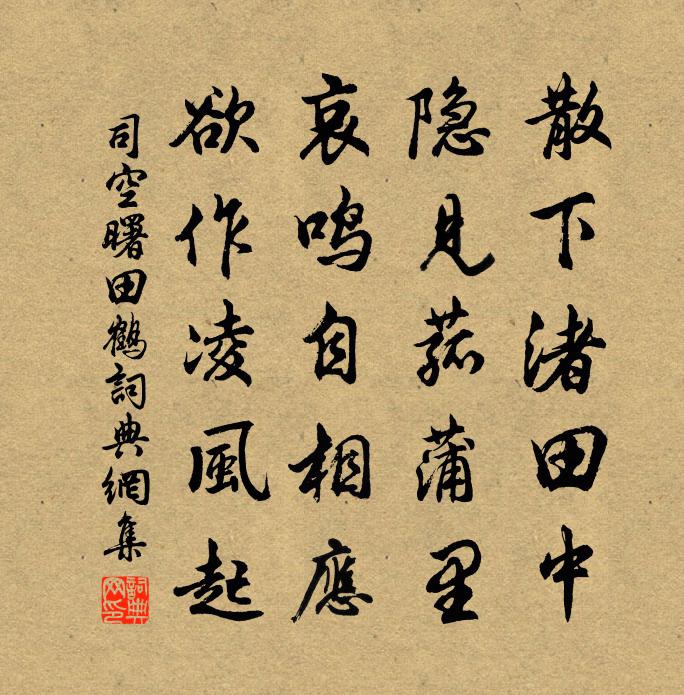 散下渚田中
隐見菰蒲里
哀鳴自相應
欲作凌風起
司空曙田鶴詞典網集
詞典网印